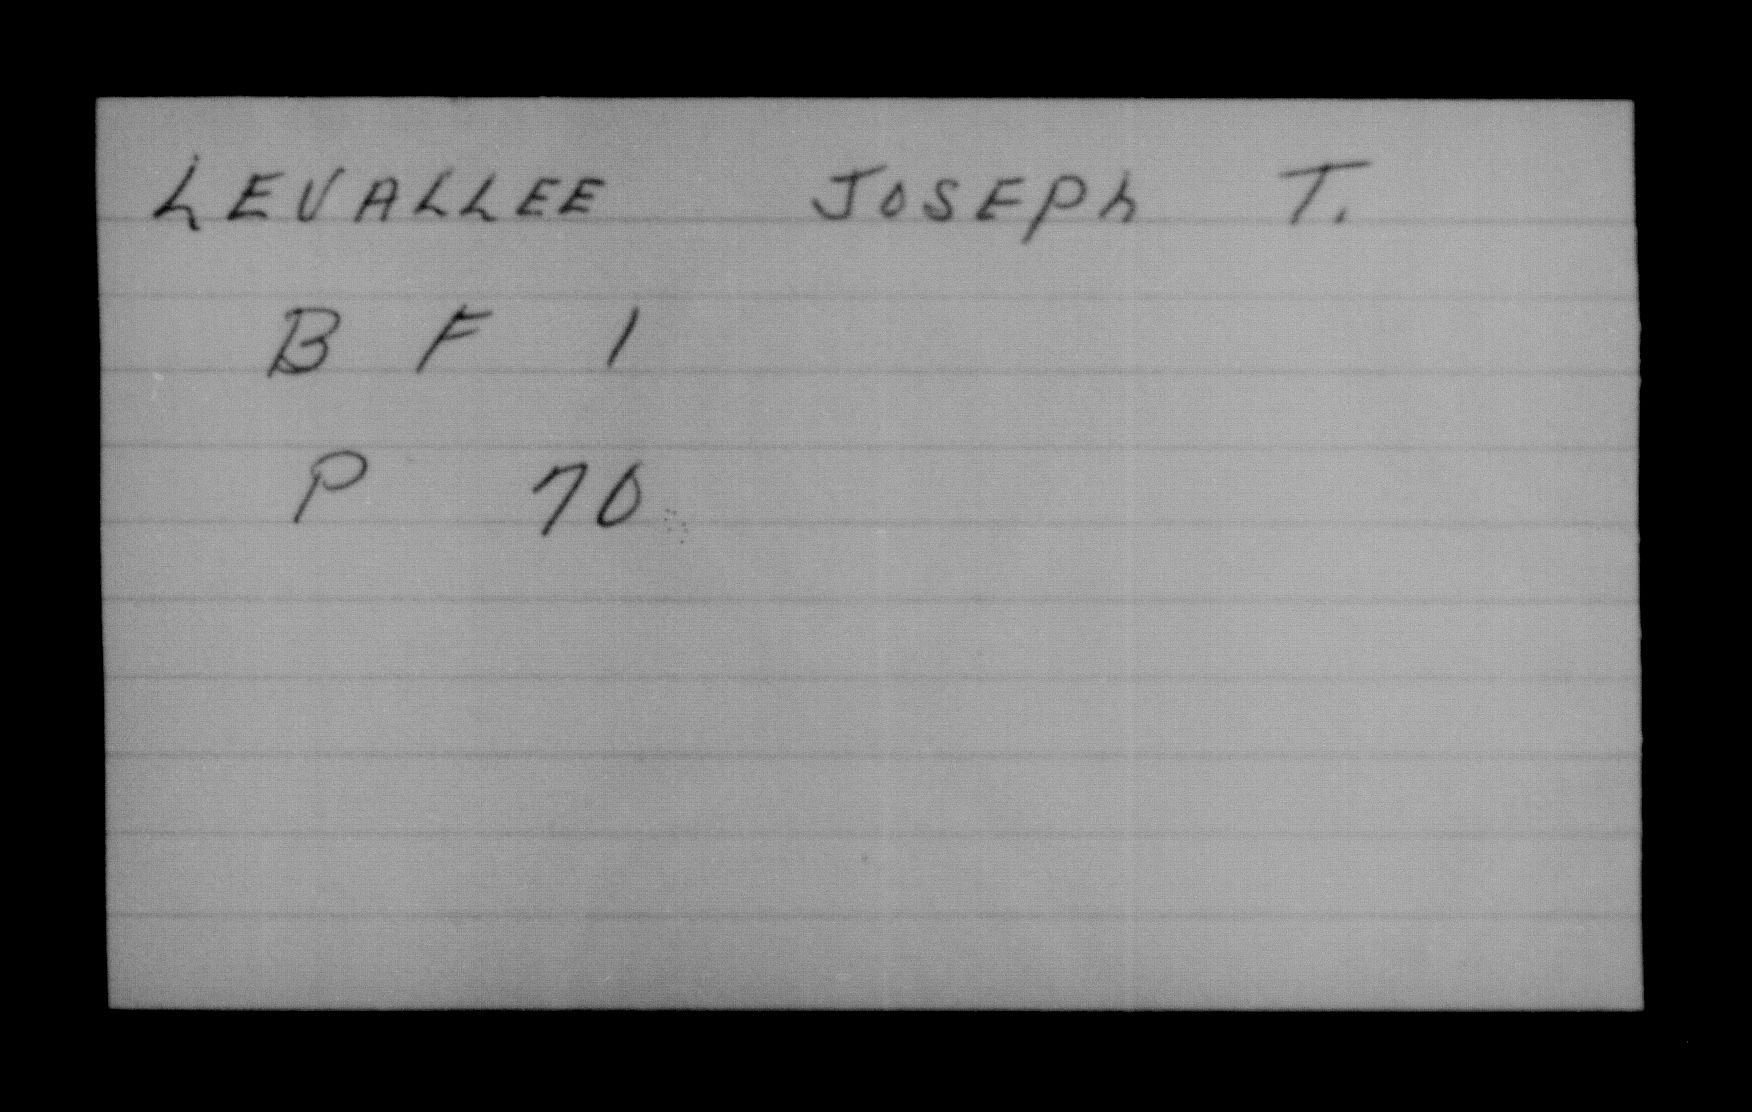 LEVALLEE JOSEPH T.
B F 1
P 70